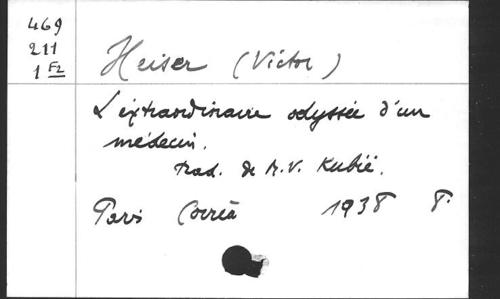 469
211
1 Fz
Heiser (Victor)
L'extraordinaire odyssée d'un
médecin.
trad. de M. V. Kubié.
Paris Corrêa 1938 8°